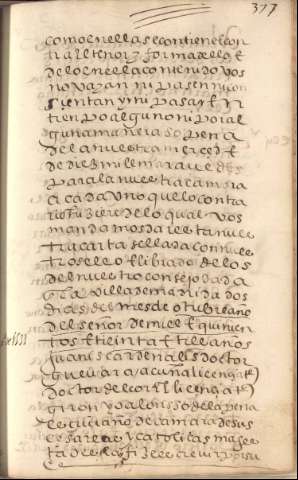 377
como en ellas se contiene e con
tra el tenor y forma dellas e
de lo en ella contenido vos
no vayan ni pasen ni con
sientan yr ni pasar en
tienpo alguno ni por al
guna manera so pena
de la nuestra merced e
de diez mill maravedis
para la nuestra camara
a cada vno que lo contra
rio hiziere de lo qual vos
mandamos dar esta nues
tra carta sellada con nues
tro sello e librada de los
del nuestro consejo dada
en la villa de madrid a dos
dias del mes de otubre año
del señor de mill e quinien
tos e treinta e tres años
juanis cardenalis doctor
guevara acuña licenciatus
doctor del corral licenciatus
giron yo alonso de la peña
escriuano de camara de sus
cesarea y catolicas mages
tades la fize escreuir por su